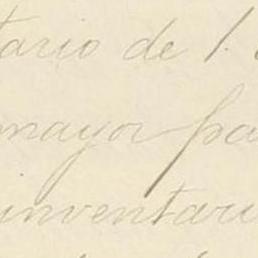 tario de 1.
mayor pa
inventari